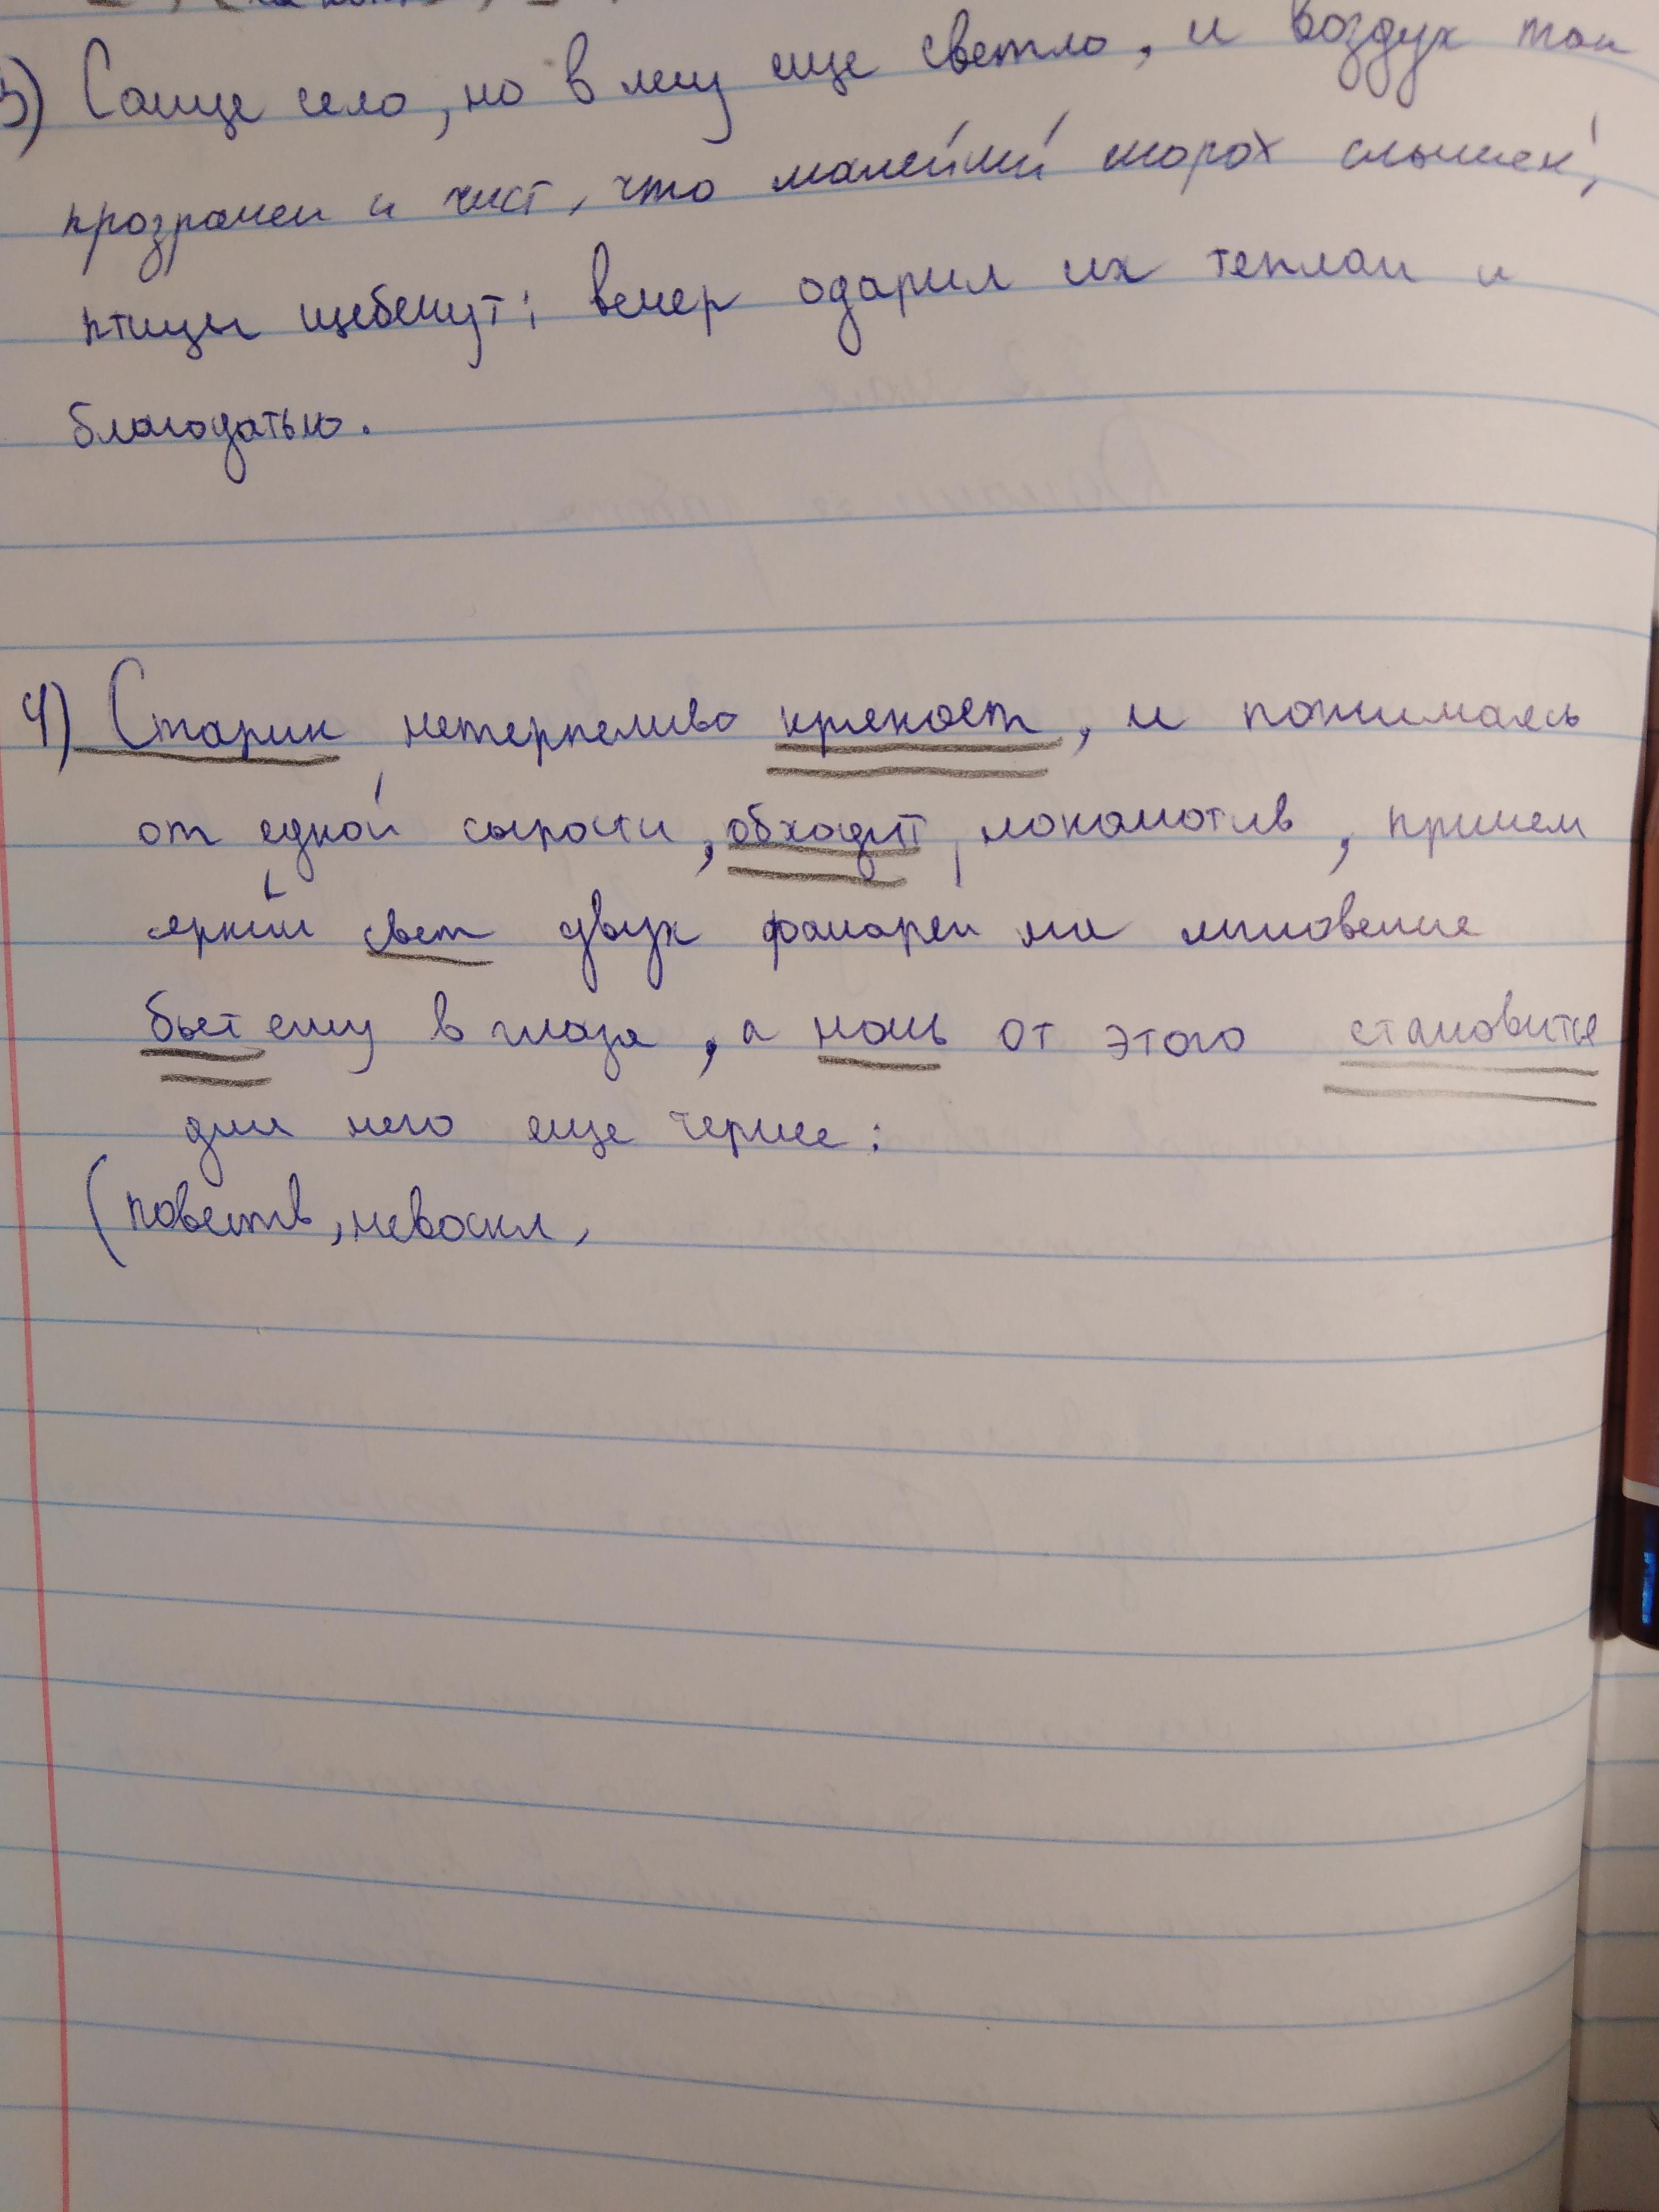 3) Солнце село, но в лесу еще светло, и воздух так
прозрачен и чист, что малейший шорох слышен;
птицы щебечут; вечер одарил их теплом и
благодатью.
4) Старик нетерпеливо крякает, и пожимаясь
от едкой сырости, обходит локомотив, причем
яркий свет двух фонарей на мгновение
бьет ему в глаза, а ночь от этого становится
для него еще чернее:
(повеств, невоскл,